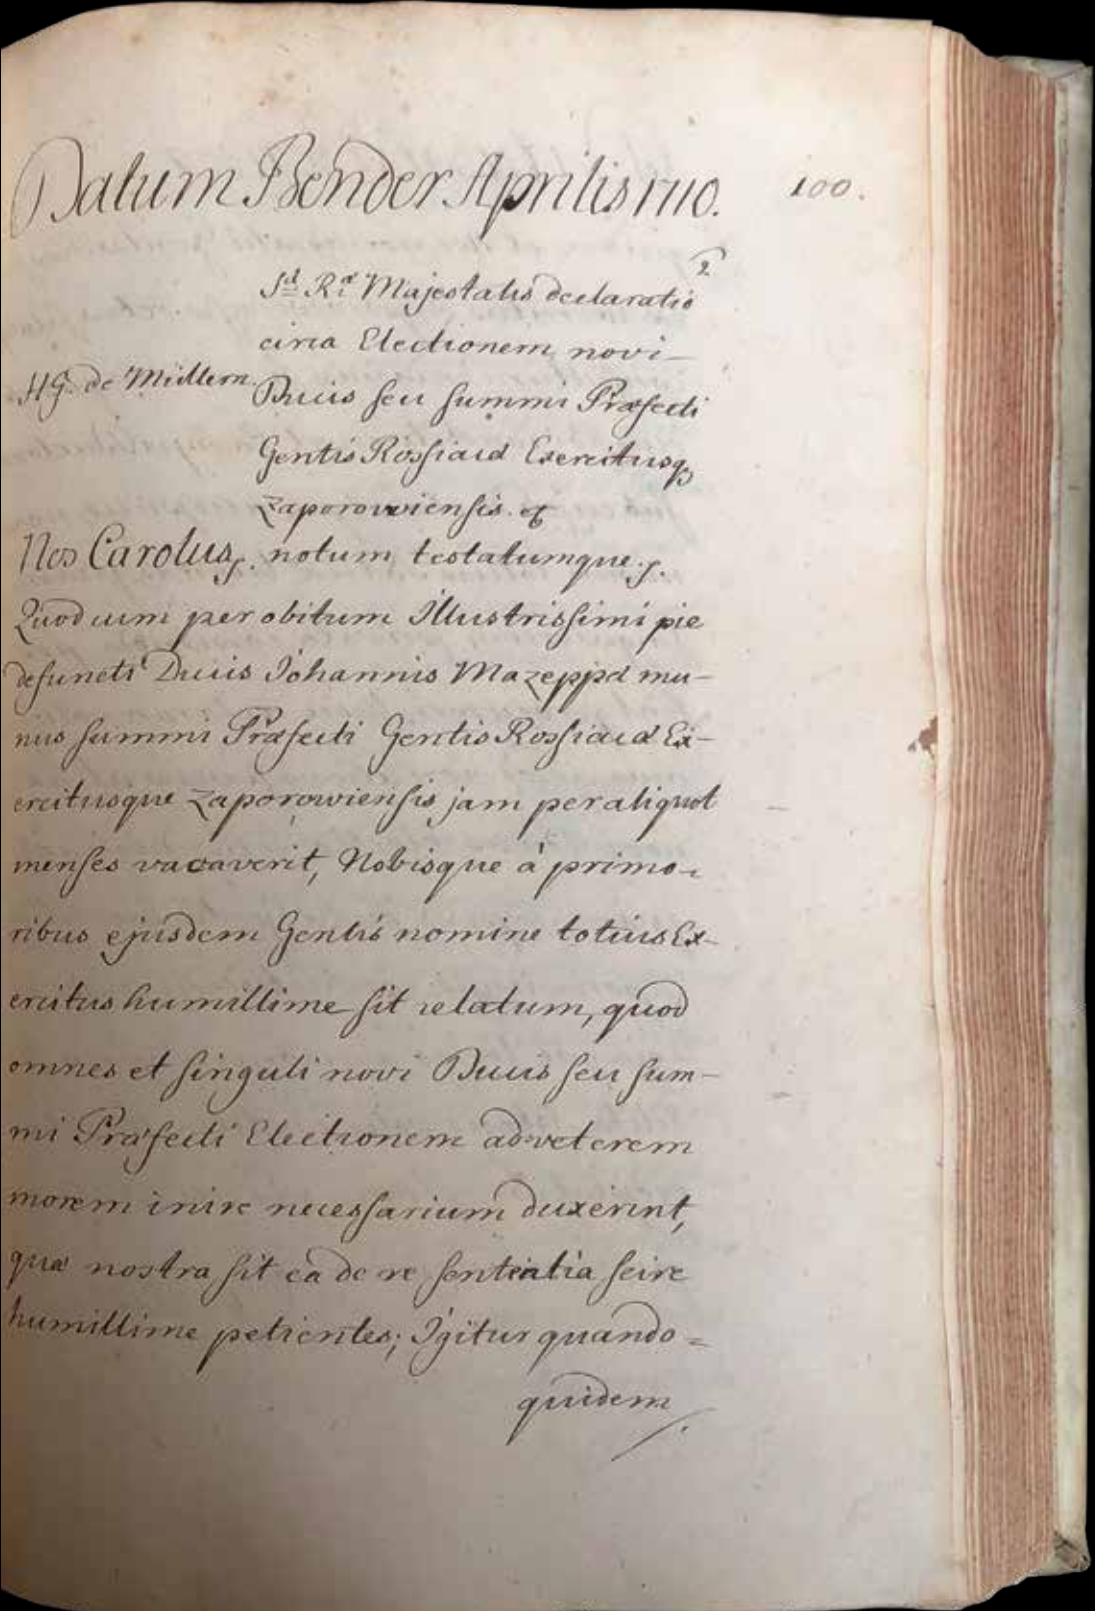 Datum Bender Aprilis 1710.
100.
2
Sæ Ræ Majestatis declaratio
circa Electionem novi
HG. de Müllern.
Ducis seu summi Præfecti
Gentis Rossiacæ Exercitusq
Zaporowiensis.
Nos Carolus, notum testatumque.
Quod cum per obitum Illustrissimi pie
defuncti Ducis Johannis Mazeppæ mu-
nus summi Præfecti Gentis Rossiacæ Ex-
ercitusque Zaporowiensis jam per aliquot
menses vacaverit, Nobisque à primo-
ribus ejusdem Gentis nomine totius Ex-
ercitus humillime sit relatum, quod
omnes et singuli novi Ducis seu sum-
mi Præfecti Electionem ad veterem
morem inire necessarium duxerint,
quæ nostra sit eâ de re sententia scire
humillime petientes; Igitur quando=
quidem